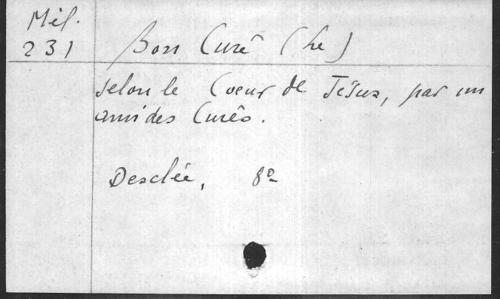 Mél.
231
Bon Curé (Le)
selon le Coeur de Jésus, par un
ami des Curés.
Desclée, 8º